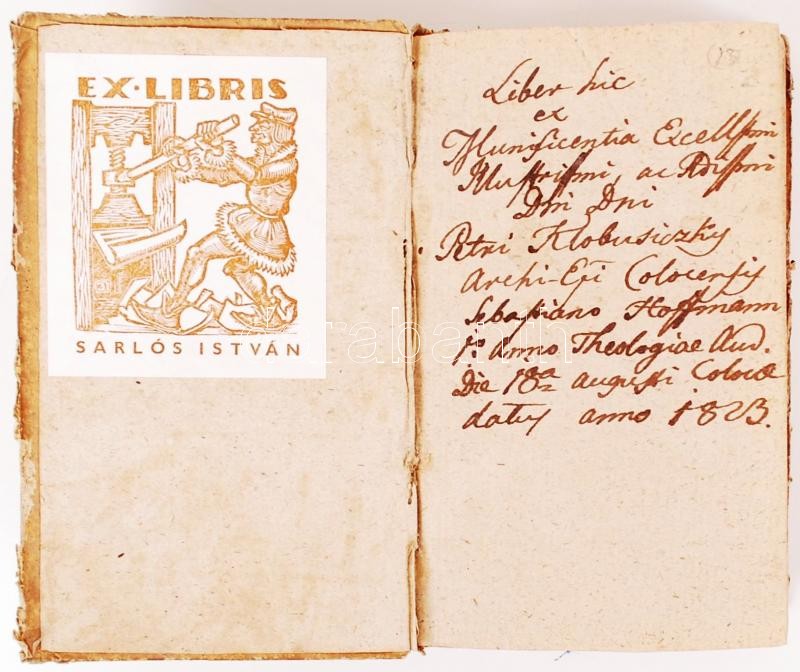 EX·LIBRIS
SARLÓS ISTVÁN
Liber hic
ex
Munificentia Excellsmi
Illustrismi, ac Rdissmi
Dni Dni
Petri Klobusiczky
Archi-Epi Colocensis
Sebastiano Hoffmann
1o anno Theologiae Aud.
Die 18a augusti Colocae
datus anno 1823.